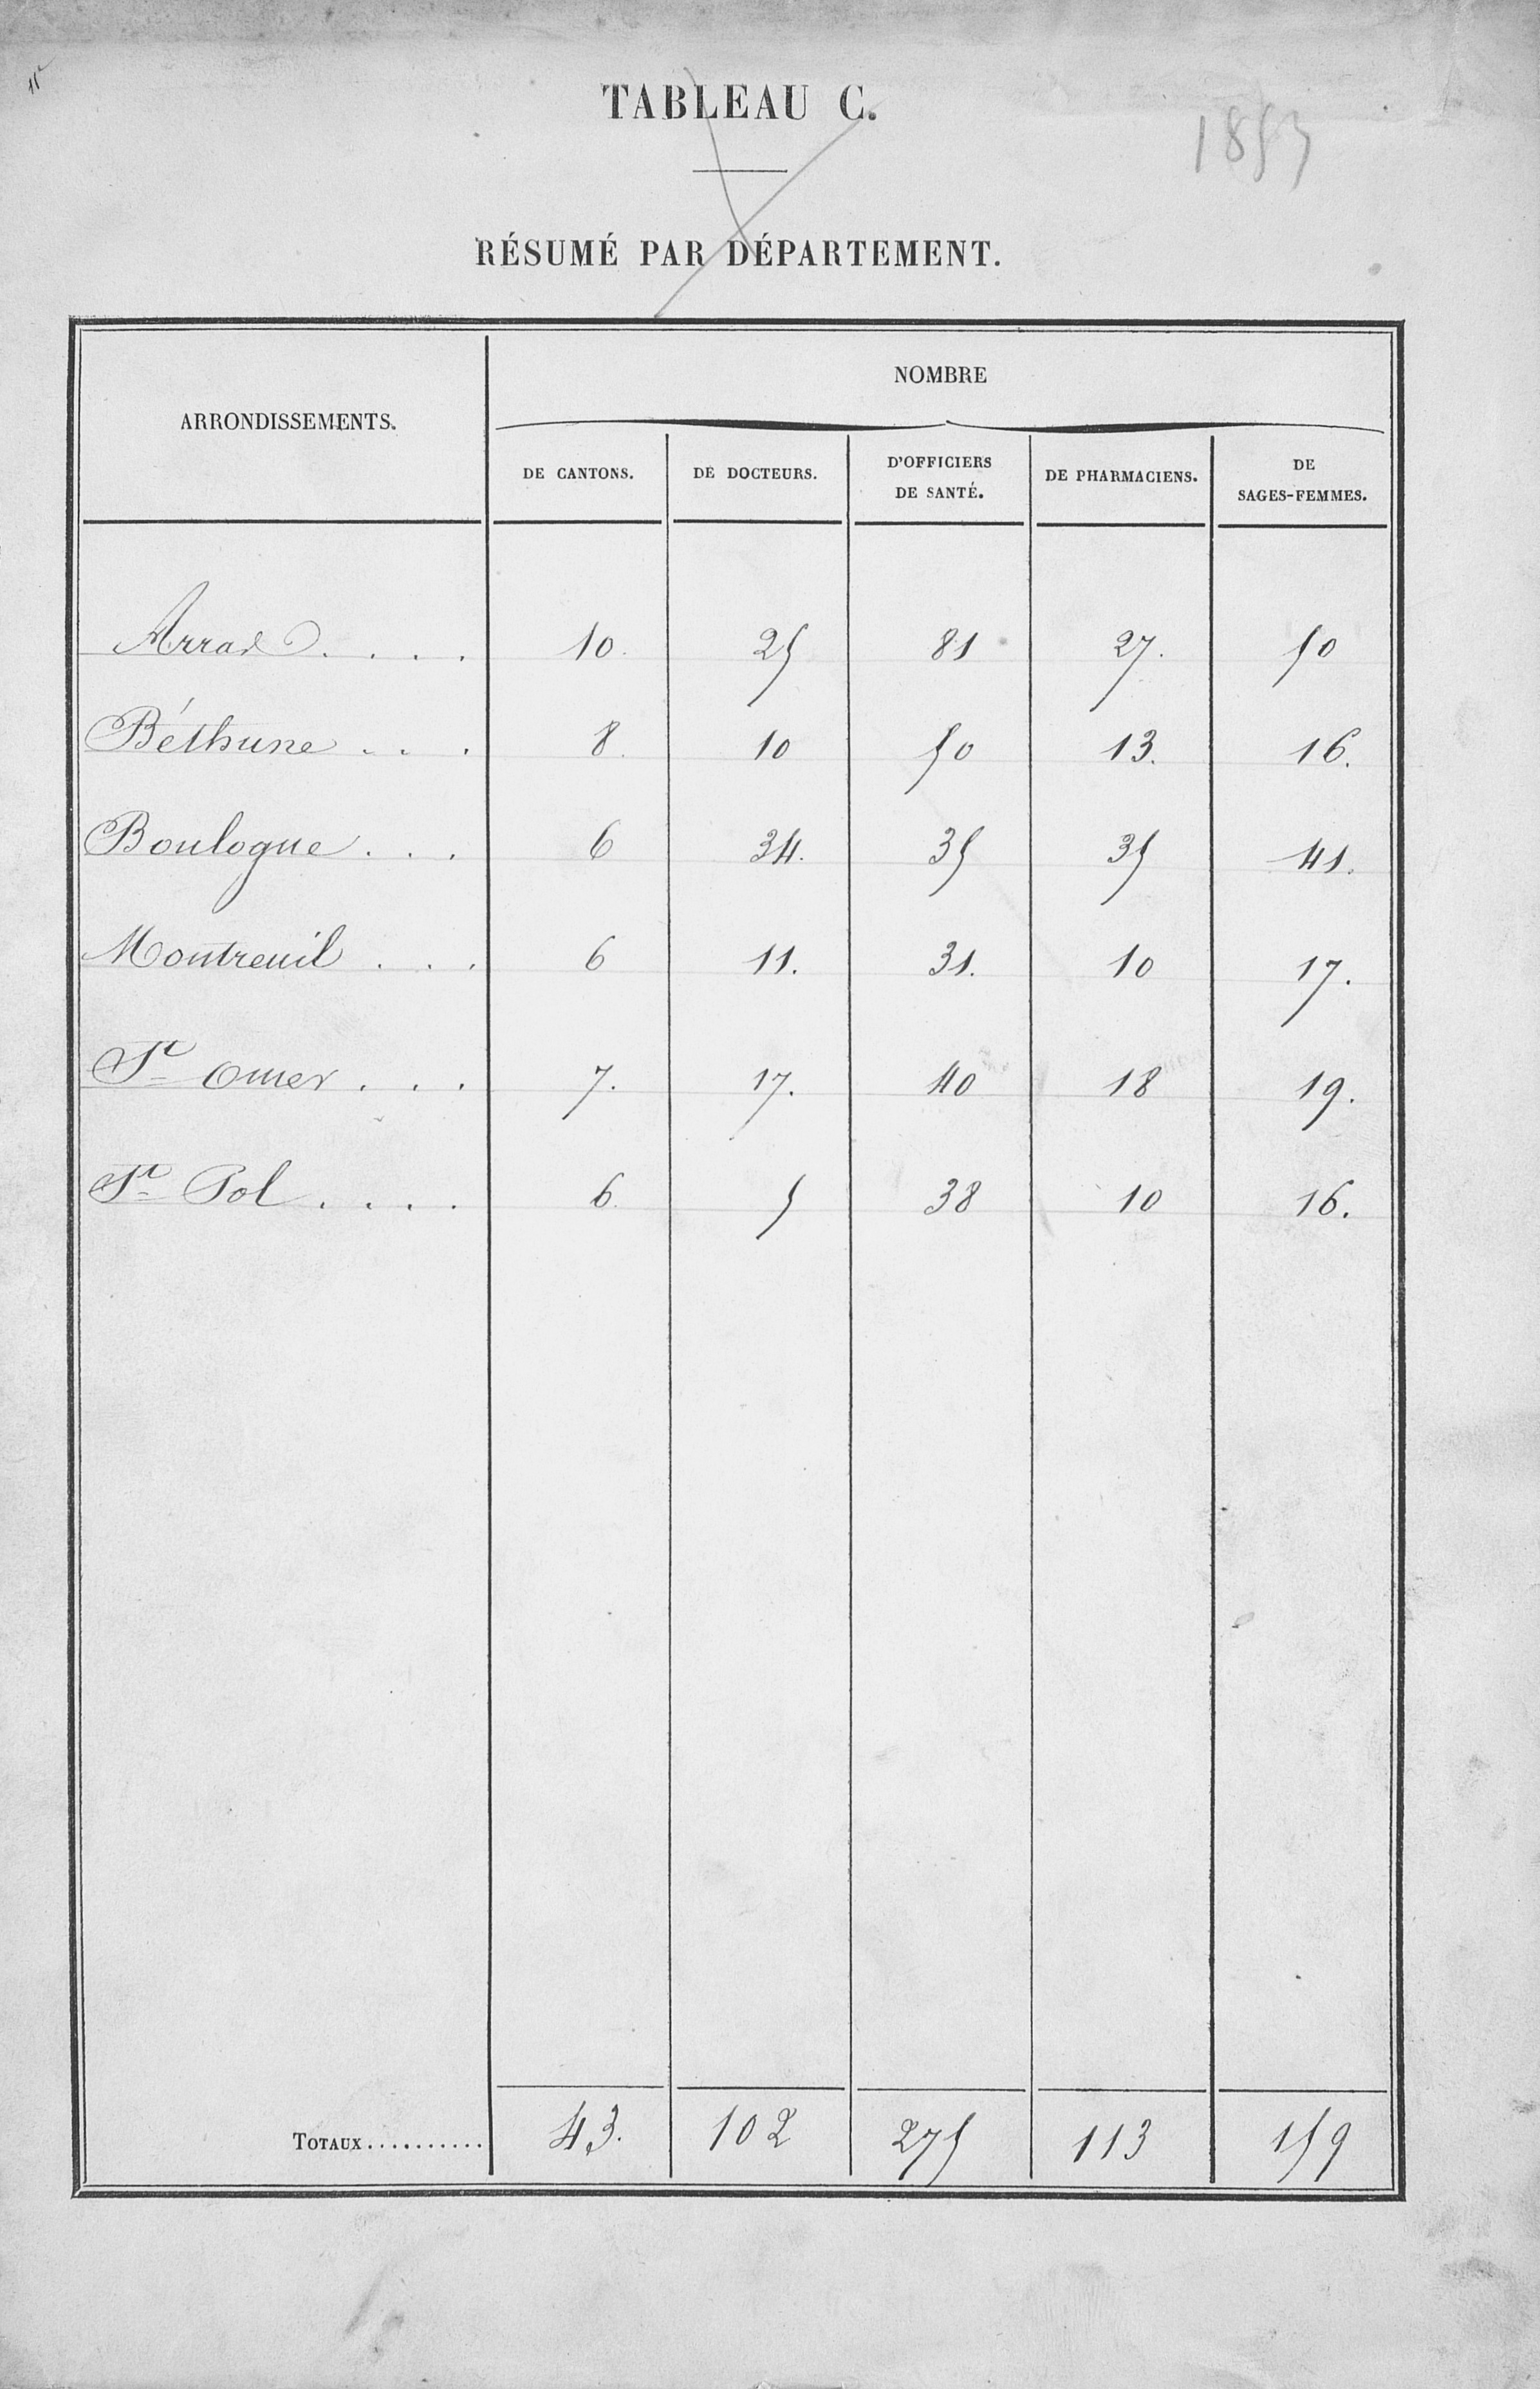 TABLEAU C.
1853
RÉSUMÉ PAR DÉPARTEMENT.
ARRONDISSEMENTS.
NOMBRE
DE CANTONS. DE DOCTEURS. D'OFFICIERS DE SANTÉ. DE PHARMACIENS. DE SAGES-FEMMES.
Arras . . . . 10. 25 81 27. 50
Béthune . . . 8. 10 50 13. 16.
Boulogne . . . 6 34. 35 35 41.
Montreuil . . . 6 11. 31. 10 17.
St Omer . . . 7. 17. 40 18 19.
St Pol . . . . 6. 5 38 10 16.
TOTAUX.......... 43. 102 275 113 159